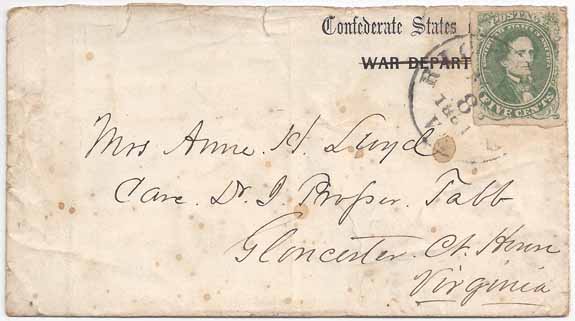 Confederate States
WAR DEPART
POSTAGE
FIVE CENTS
RIC
8
1861
VA
Mrs Anne. H. Lloyd
Care. Dr. J Prosser. Tabb
Gloucester. Ct. House
Virginia